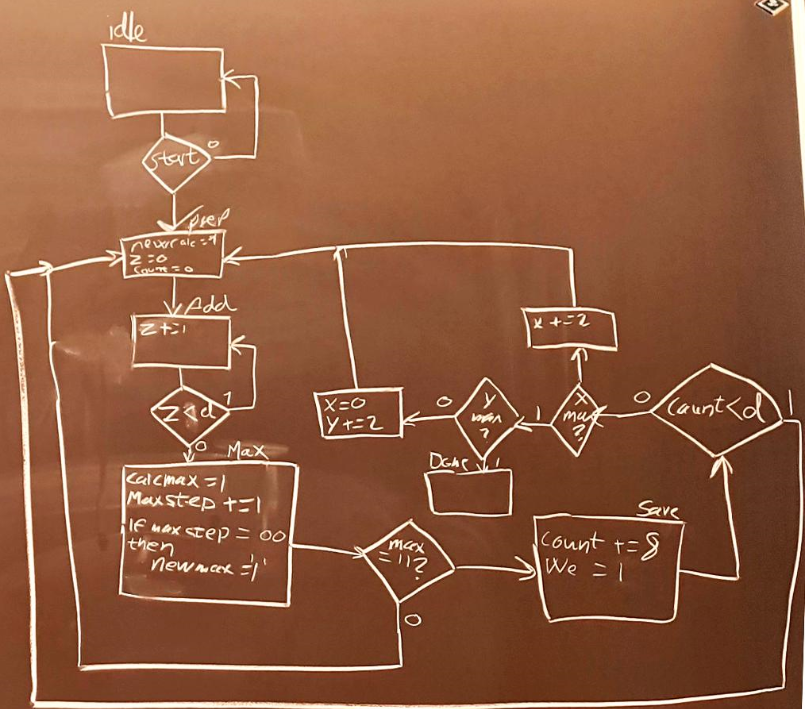 idle
start
0
prep
newcalc=1
z=0
count=0
Add
z+=1
z<d
1
0
Max
calcmax=1
Maxstep +=1
If maxstep = 00
then
newmax ='1'
max
=11?
0
Save
Count += 8
We = 1
Count<d
1
0
x
max
?
x +=2
1
y
max
?
0
x=0
y+=2
1
Done